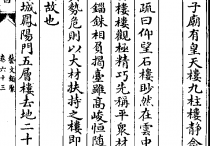 子廟有皇天樓九柱樓靜念
疏曰仰望石樓眇然在雲中
樓樓觀極精巧先稱平衆材
錙銖相負揭臺雖高峻恒隨
勢危則以大材扶持之樓即
故也
城鳳陽門五層樓去地二十
卷六十三